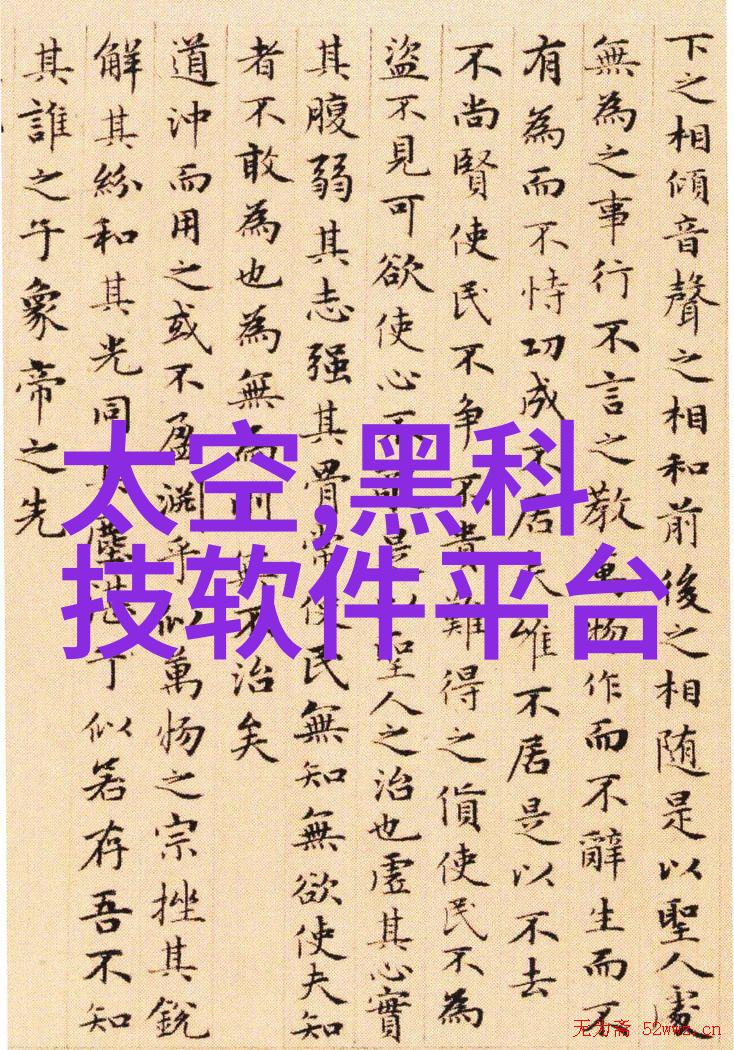 下之相傾音聲之相和前後之相随是以聖人處
無為之事行不言之教萬物作而不辭生而不
有為而不恃功成不居夫唯不居是以不去
不尚賢使民不争不貴難得之貨使民不為
盜不見可欲使心不是以聖人之治也虛其心實
其腹弱其志强其骨常使民無知無欲使夫知
者不敢為也為無為則不治矣
道沖而用之或不盈淵乎似萬物之宗挫其銳
解其紛和其光同塵湛兮似若存吾不知
其誰之子象帝之先
太空,黑科
技软件平台
无为斋 52wwz.cn